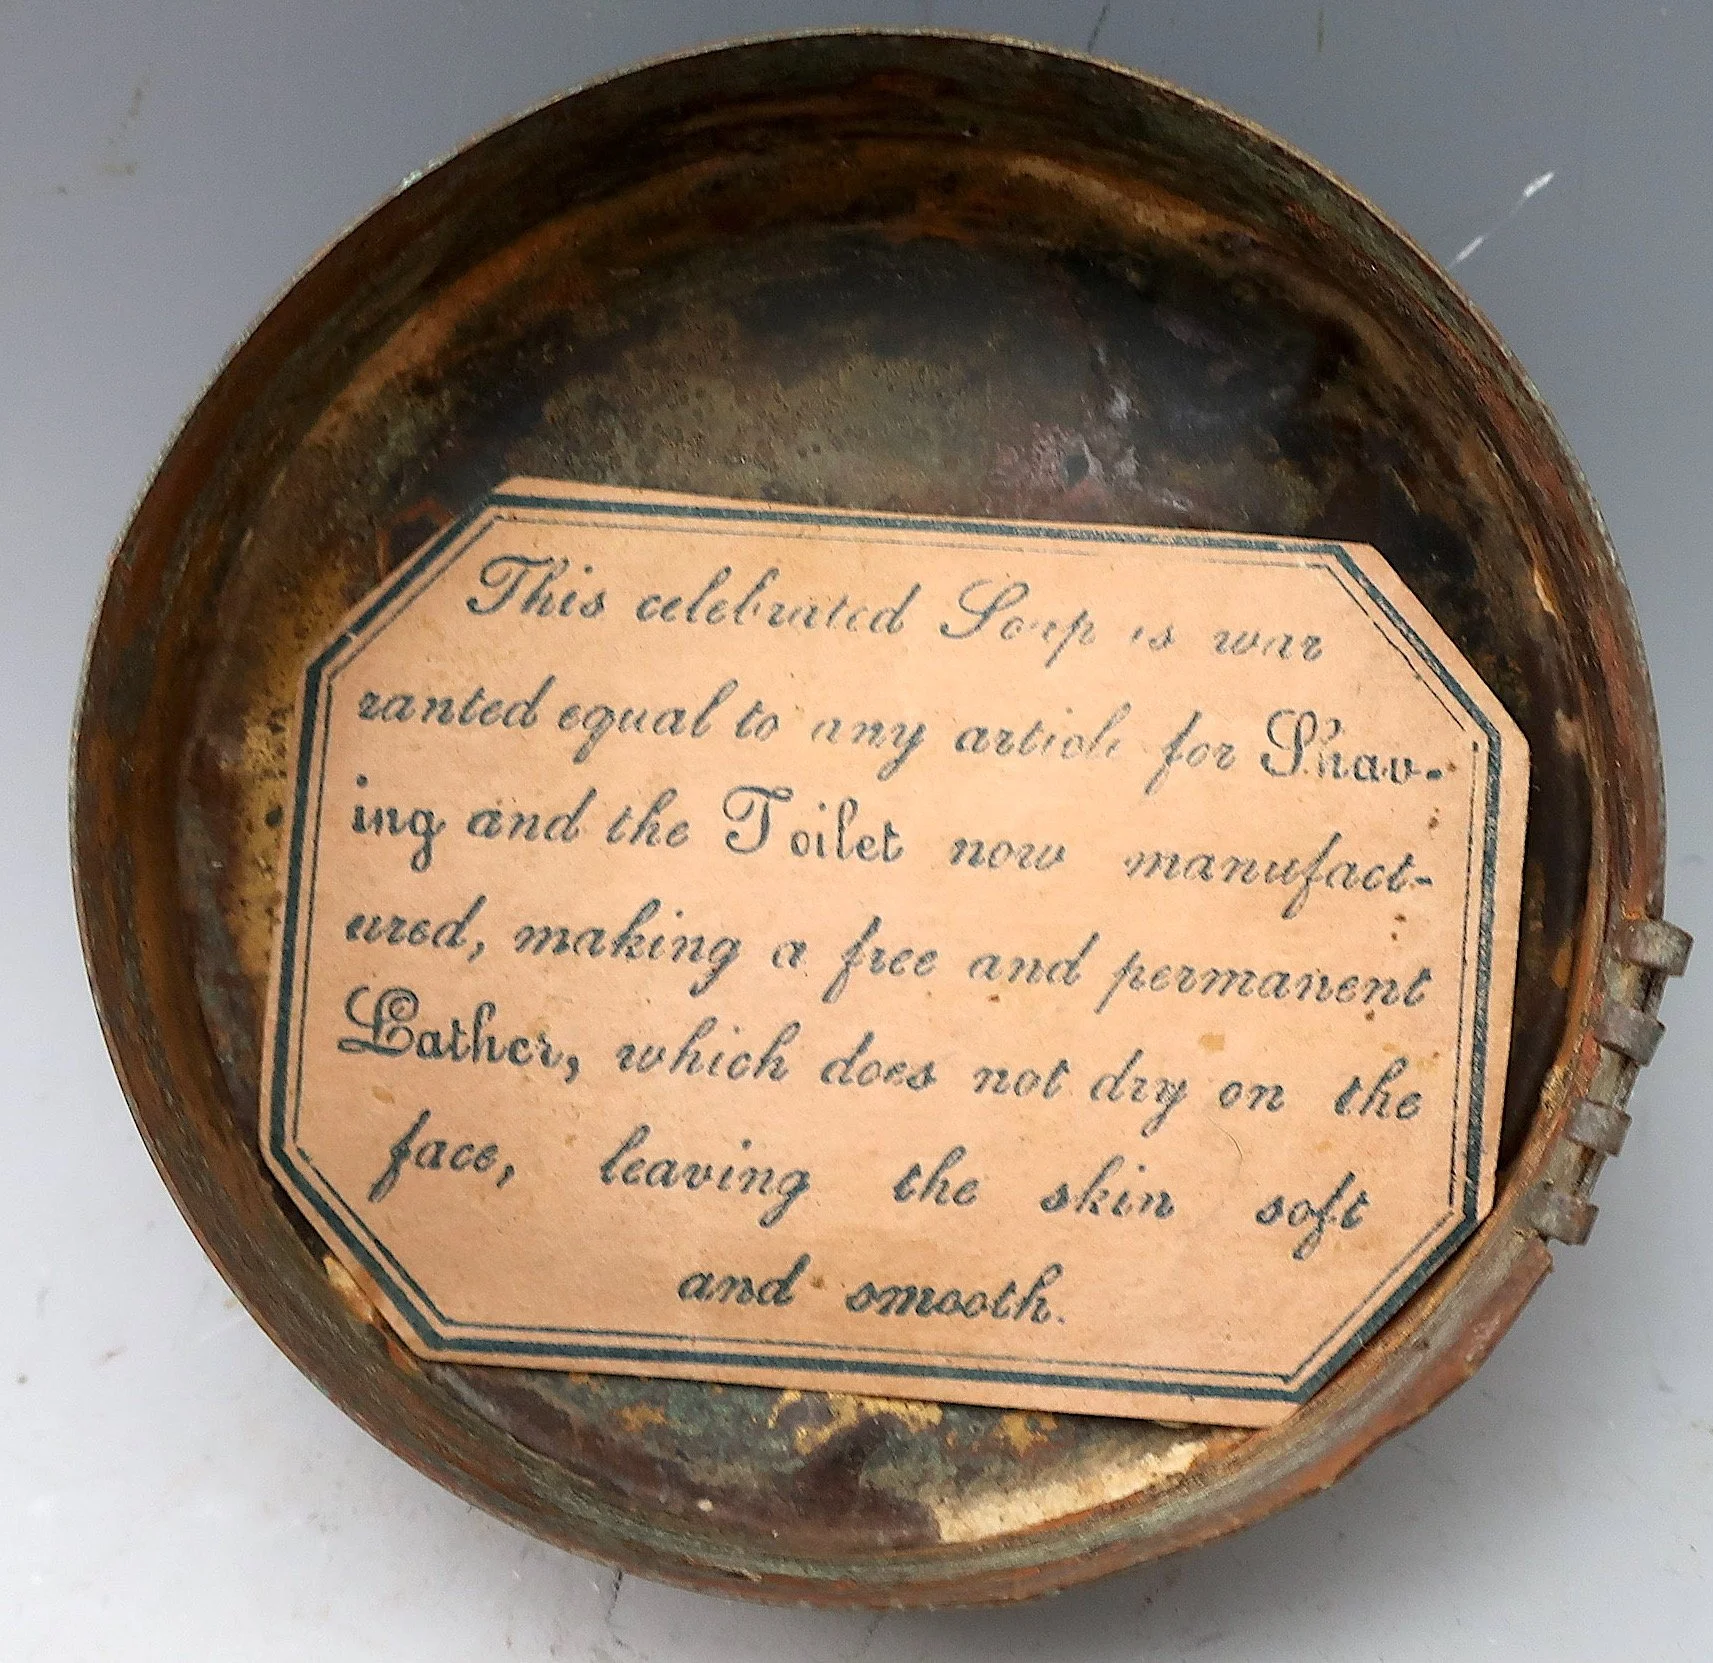 This celebrated Soap is war
ranted equal to any article for Shav-
ing and the Toilet now manufact-
ured, making a free and permanent
Lather, which does not dry on the
face, leaving the skin soft
and smooth.